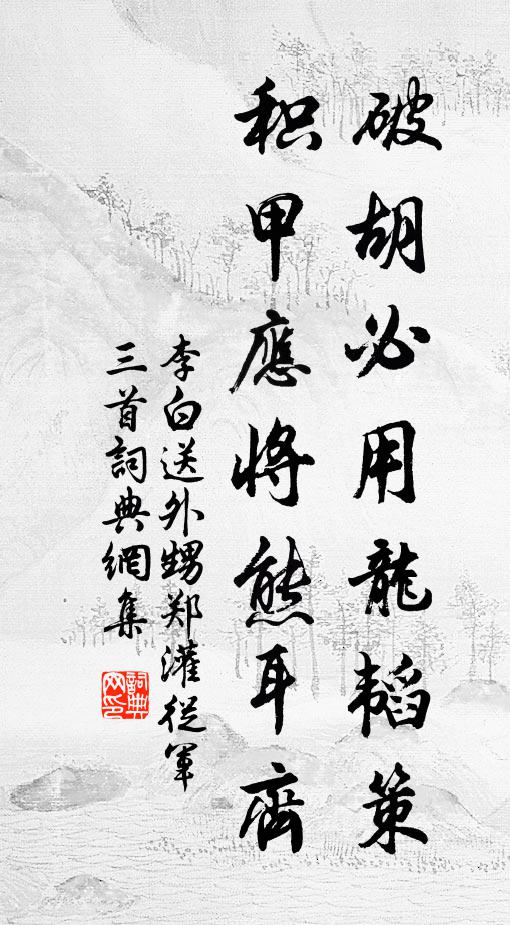 破胡必用龍韜策
积甲應將熊耳齊
李白送外甥郑灌従军
三首詞典網集
詞典网印